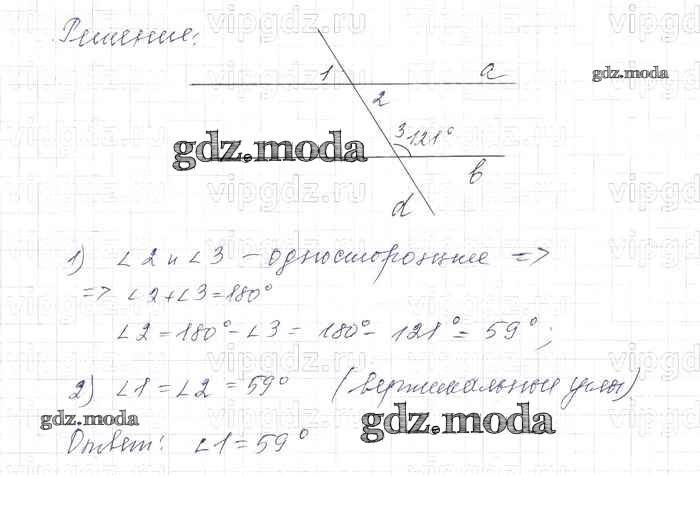 Решение:
1
a
2
3
121°
b
d
1) ∠2 и ∠3 – односторонние =>
=> ∠2+∠3=180°
∠2=180°-∠3= 180°- 121°= 59°;
2) ∠1=∠2=59° (вертикальные углы)
Ответ: ∠1=59°
gdz.moda
gdz.moda
gdz.moda
gdz.moda
vipgdz.ru